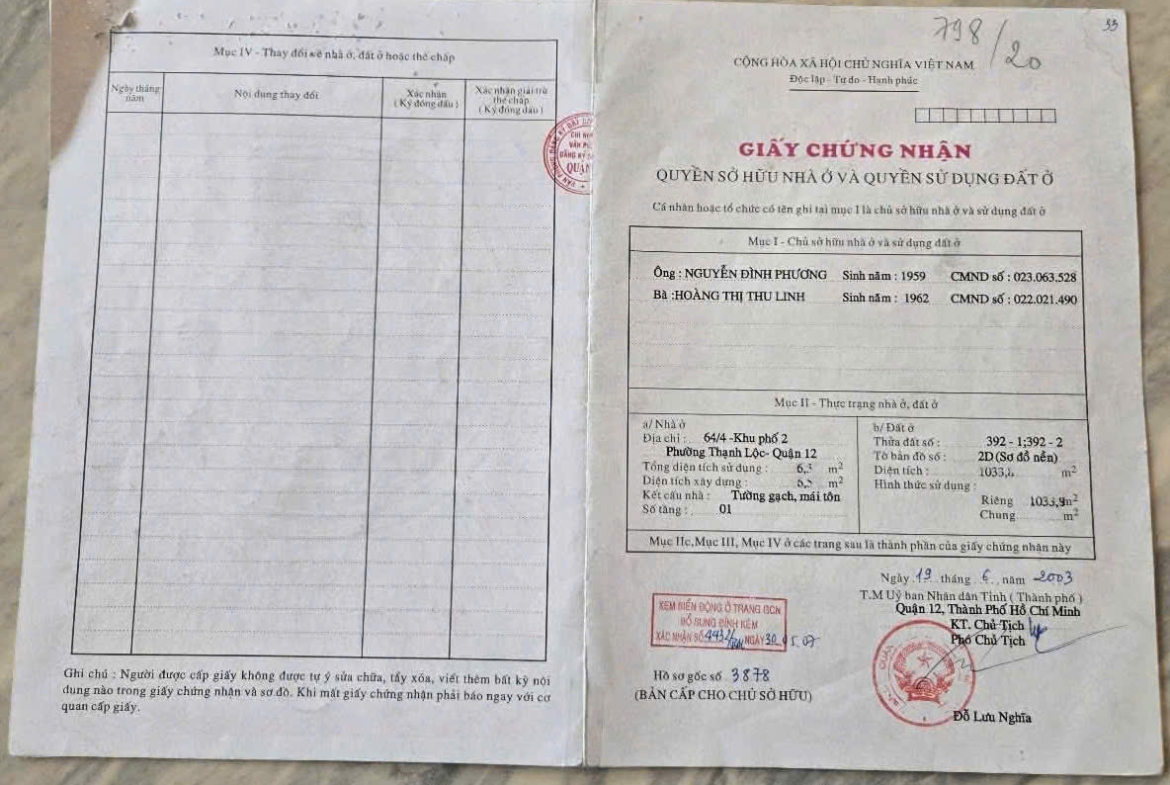 Mục IV - Thay đổi về nhà ở, đất ở hoặc thế chấp
Ngày tháng năm
Nội dung thay đổi
Xác nhận
(Ký đóng dấu)
Xác nhận giải trừ
thế chấp
(Ký đóng dấu)
Ghi chú : Người được cấp giấy không được tự ý sửa chữa, tẩy xóa, viết thêm bất kỳ nội
dung nào trong giấy chứng nhận và sơ đồ. Khi mất giấy chứng nhận phải báo ngay với cơ
quan cấp giấy.
798/20
55
CỘNG HÒA XÃ HỘI CHỦ NGHĨA VIỆT NAM
Độc lập - Tự do - Hạnh phúc
GIẤY CHỨNG NHẬN
QUYỀN SỞ HỮU NHÀ Ở VÀ QUYỀN SỬ DỤNG ĐẤT Ở
Cá nhân hoặc tổ chức có tên ghi tại mục I là chủ sở hữu nhà ở và sử dụng đất ở
Mục I - Chủ sở hữu nhà ở và sử dụng đất ở
Ông : NGUYỄN ĐÌNH PHƯƠNG Sinh năm : 1959 CMND số : 023.063.528
Bà :HOÀNG THỊ THU LINH Sinh năm : 1962 CMND số : 022.021.490
Mục II - Thực trạng nhà ở, đất ở
a/ Nhà ở
Địa chỉ : 64/4 -Khu phố 2
Phường Thạnh Lộc- Quận 12
Tổng diện tích sử dụng : m²
Diện tích xây dựng : m²
Kết cấu nhà : Tường gạch, mái tôn
Số tầng : 01
b/ Đất ở
Thửa đất số : 392 - 1;392 - 2
Tờ bản đồ số : 2D (Sơ đồ nền)
Diện tích : m²
Hình thức sử dụng :
Riêng 1033,9m²
Chung m²
Mục IIc,Mục III, Mục IV ở các trang sau là thành phần của giấy chứng nhận này
Ngày 19 tháng 6 năm 2003
T.M Uỷ ban Nhân dân Tỉnh ( Thành phố )
Quận 12, Thành Phố Hồ Chí Minh
KT. Chủ Tịch
Phó Chủ Tịch
Đỗ Lưu Nghĩa
XEM BIẾN ĐỘNG Ở TRANG GCN
BỔ SUNG ĐÍNH KÈM
XÁC NHẬN SỐ NGÀY 30.05.07
Hồ sơ gốc số 3878
(BẢN CẤP CHO CHỦ SỞ HỮU)